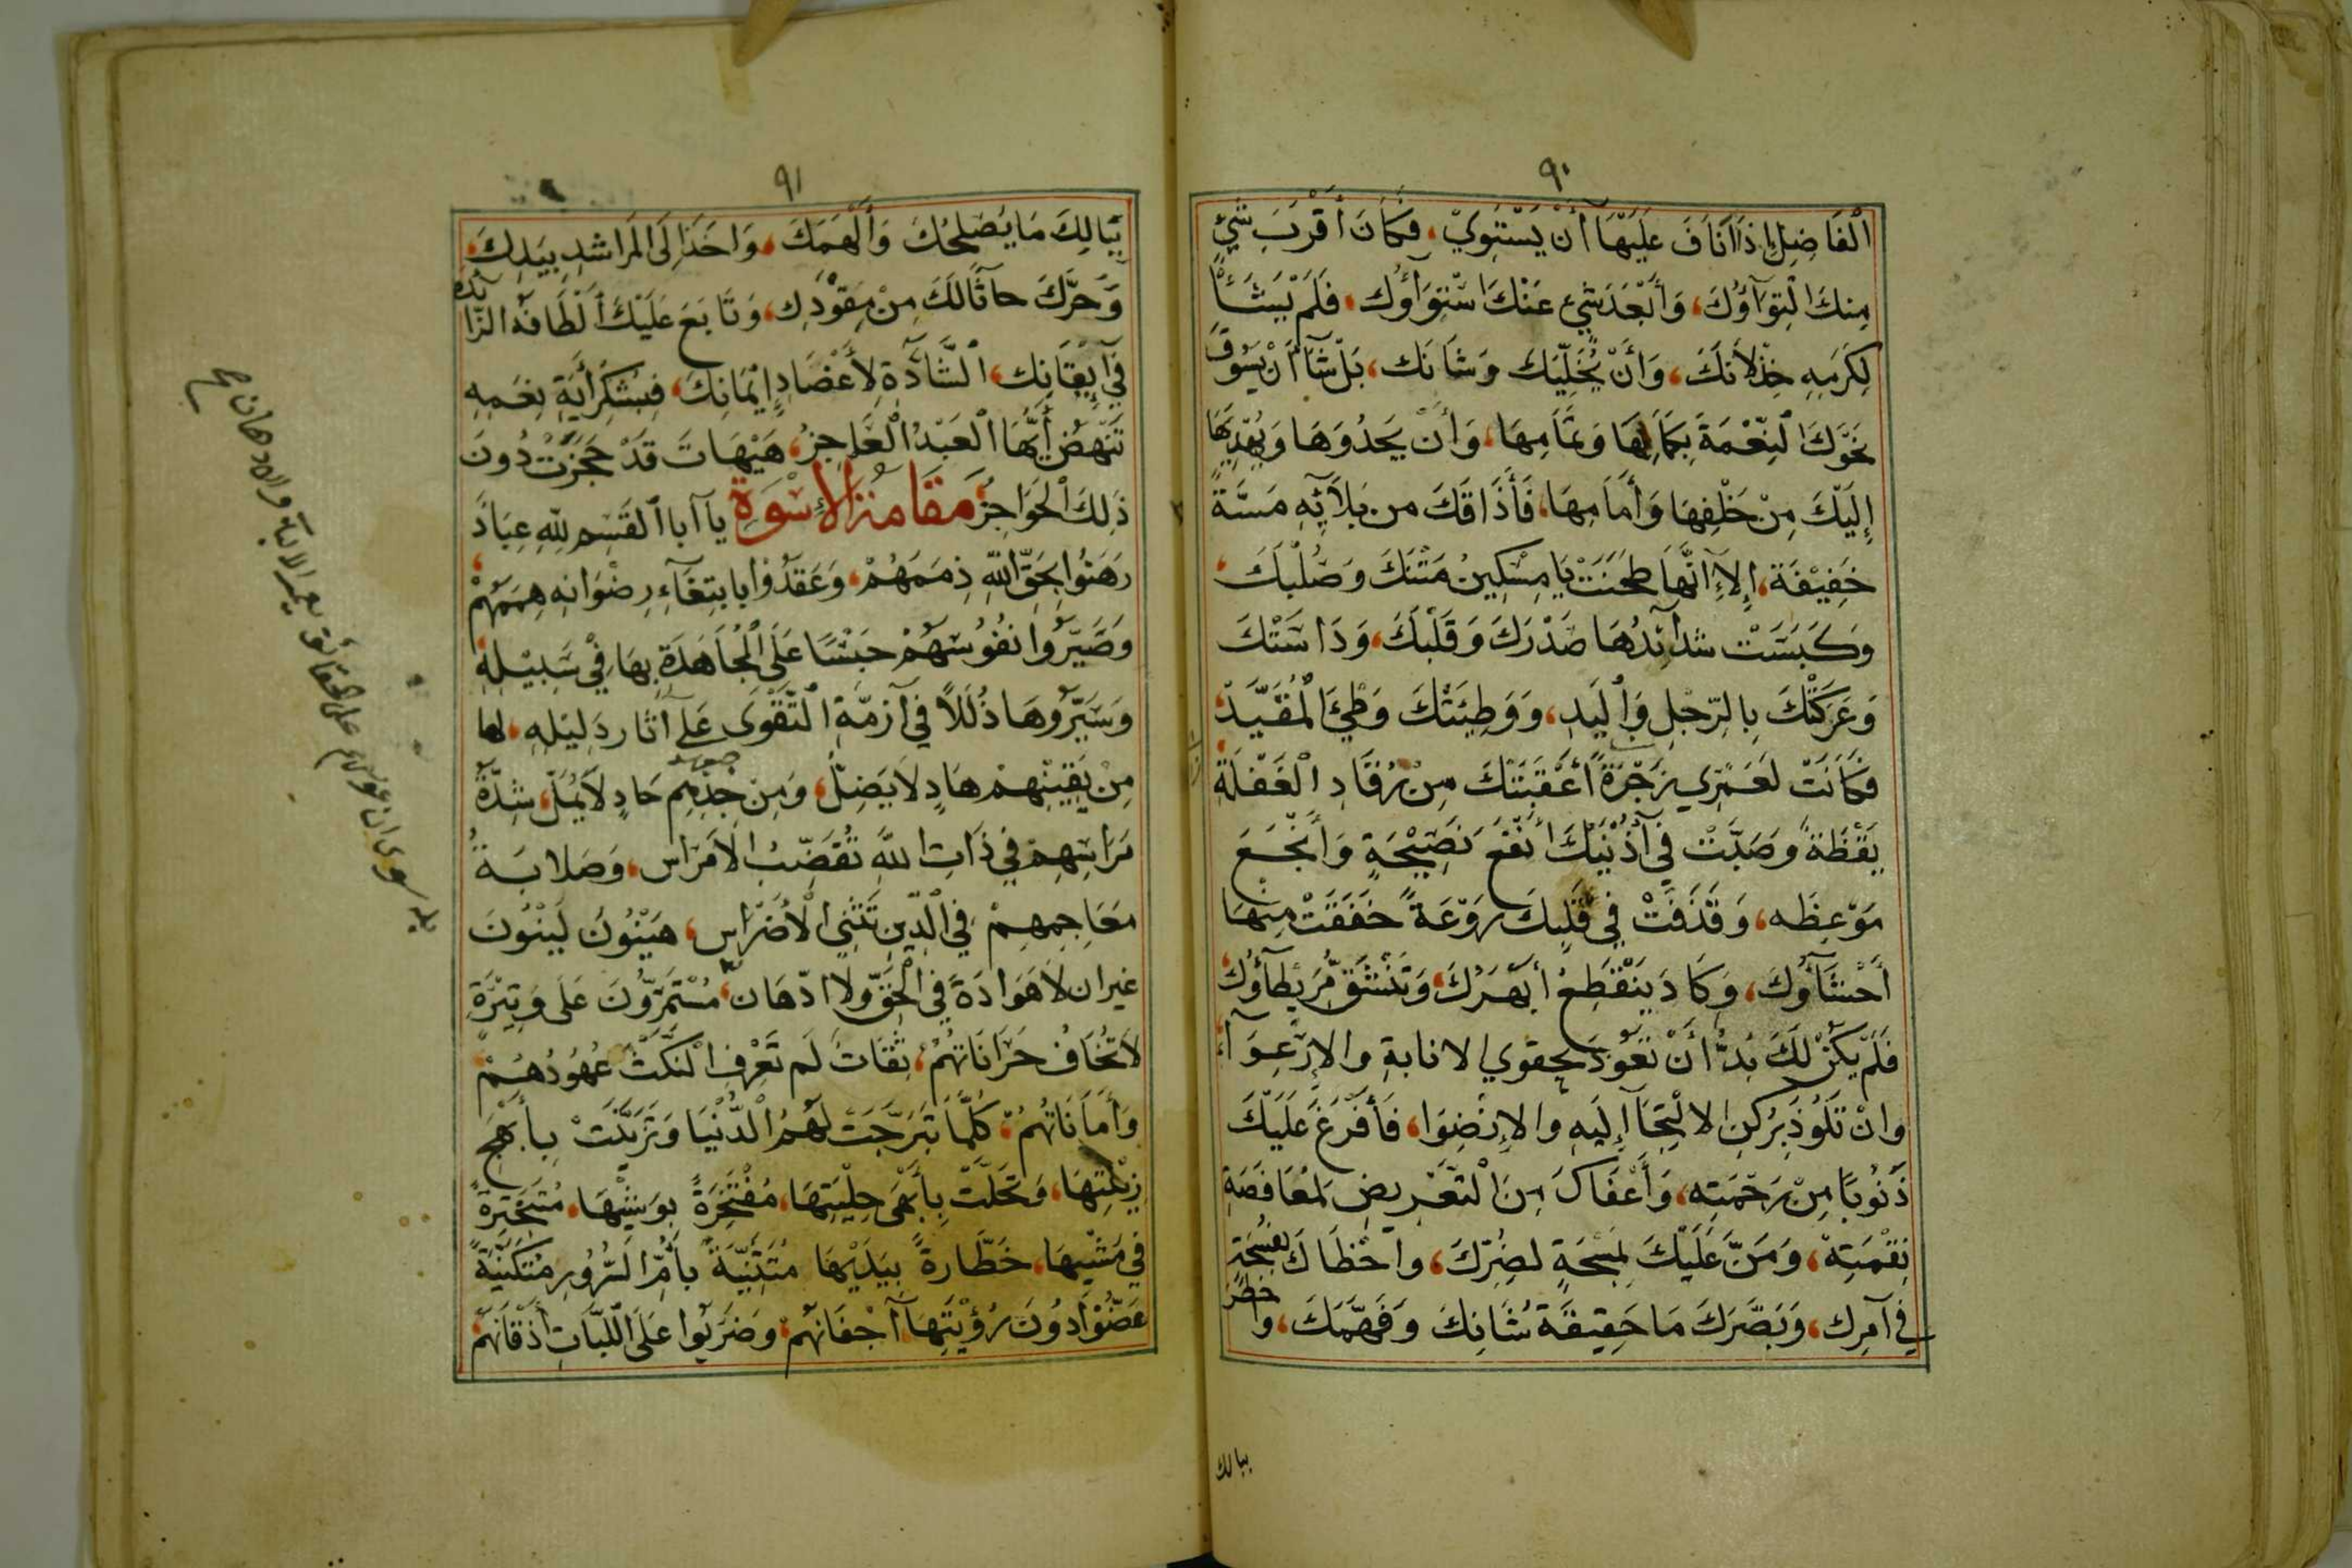 ٩٠
ٱلْفَاضِلِ إِذَا أَنَافَ عَلَيْهَا أَنْ يَسْتَوِيَ، فَكَانَ أَقْرَبَ شَيْءٍ
مِنكَ الْتِوَآؤُكَ، وَأَبْعَدَ شَيْءٍ عَنْكَ اسْتِوَاؤُكَ، فَلَمْ يَشَأْ
لِكَرَمِهِ خِذْلَانَكَ، وَأَنْ يُخَلِّيَكَ وَشَانَك، بَلْ شَآءَ أَنْ يَسُوقَ
نَحْوَكَ ٱلنِّعْمَةَ بِكَمَالِهَا وَتَمَامِهَا، وَأَنْ يَحْدُوَهَا وَيُهْدِيَهَا
إِلَيْكَ مِنْ خَلْفِهَا وَأَمَامِهَا، فَأَذَاقَكَ من بَلَآئِهِ مَسَّةً
خَفِيْفَة، إِلَّا أَنَّهَا طَحَنَتْ يَا مِسْكِينُ مَتْنَكَ وَصُلْبَكَ،
وَكَبَسَتْ شَدَآئِدُهَا صَدْرَكَ وَقَلْبَكَ، وَدَاسَتْكَ
وَعَرَكَتْكَ بِالرِّجْلِ وَٱلْيَدِ، وَوَطِيَتْكَ وَطْيَ الْمُقَيَّدِ،
فَكَانَتْ لَعَمْرِي زَجْرَةً أَعْقَبَتْكَ مِنْ رُقَادِ الْغَفْلَةِ
يَقْظَةً وَصَبَّتْ فِي أُذُنَيْكَ أَنْفَعَ نَصِيْحَةٍ وَأَنْجَعَ
مَوْعِظَه، وَقَذَفَتْ فِي قَلْبِكَ رَوْعَةً خَفَقَتْ مِنْهَا
أَحْشَآؤُكَ، وَكَادَ يَنْقَطِعُ أَبْهَرُكَ، وَتَنْشَقُّ مُرَيْطَآؤُكَ،
فَلَمْ يَكُنْ لَكَ بُدٌّ أَنْ تَعُوذَ بِحقوي الانابةِ والإِرْعِوَآءِ،
وانْ تَلُوذَ بِرُكنِ الالْتِجَآ إِلَيهِ والإِنْضِوَا، فَأَفْرَغَ عَلَيْكَ
ذَنُوبًا مِنْ رَحْمَتِه، وَأَعْفَاكَ مِنَ الْتَعْرِيضِ لمُعَافَصَةِ
نِقْمَتِهْ، وَمَنَّ عَلَيْكَ بِمَسْحَةٍ لِضُرِّكَ، وأحْظَاكَ بفُسْحَةٍ
في أمِرِك، وَبَصَّرَكَ مَا حَقِيقَة شَانِكَ وَفَهَّمَكَ، وأخْطَرَ
ببالك
٩١
بِبَالِكَ مَا يُصْلِحُكَ وَأَلْهَمَكَ، وَاخَذَ إِلَى الْمَرَاشِدِ بِيَدِكَ،
وَحَرَّكَ حَاثًّا لَكَ مِنْ مِقْوَدِك، وَتَابَعَ عَلَيْكَ أَلْطَافَهُ الزَّائدة
فِي إِيْقَانِك، ٱلشَّادَّةِ لأَعْضَادِ إِيْمَانِكَ، فَبِشُكْرِ أَيَّةِ نِعَمِهِ
تَنْهَضُ أَيُّهَا ٱلْعَبْدُ الْعَاجِزُ، هَيْهَاتَ قَدْ حَجَزَتْ دُونَ
ذَلِكَ الْحَوَاجِزُ، مَقَامةُ الأُسْوَةِ يَآ أَبَا ٱلْقَسِمِ لِلّٰهِ عِبَادٌ
رَهَنُوا بِحَقِّ اللّٰهِ ذِمَمَهُمْ، وَعَقَدُوا بابتِغَآءِ رِضْوَانِهِ هِمَمَهُمْ،
وَصَيَّرُوا نُفُوسَهُمْ حَبْسًا عَلَى الْمُجَاهَدَةِ بِهَا فِيْ سَبِيْلِهِ،
وَسَيَّرُوهَا ذُلُلًا فِي أَزِمَّةِ التَّقْوَى عَلَى آثَارِ دَلِيلِهِ، لها
مِنْ يَقِيْنِهِمْ هَادٍ لَا يَضِلُّ، وَمِنْ جِدِّهِم حَادٍ لَا يَمَلُّ، شِدَّةُ
مَرَاسِهِمْ فِي ذَاتِ اللّٰهِ تُقَضِّبُ الأَمْرَاس، وَصَلَابَةُ
مَعَاجِمِهِمْ فِي الْدِّينِ تَثْنِي الْأَضْرَاس، هَيْنُونَ لَيْنُونَ
غيرَ ان لَا هَوَادَةَ فِي الْحَقِّ ولا ادّهَان، مُسْتَمِرُّونَ عَلَى وَتِيْرَةٍ
لا تُخَافُ حَرَانَاتُهُمْ، ثِقَاتٌ لَم تَعْرِفِ الْنَكْثَ عُهُودُهُمْ
وَأَمَانَاتُهُمْ، كُلَّمَا تَبَرَّجَتْ لَهُمُ الْدُّنْيَا وَتَزَيَّنَتْ بِأَبْهَجِ
زِيْنَتِهَا، وَتَحَلَّتْ بِأَبْهَى حِلْيَتِهَا، مُفْتَخِرَةً بوَشْيِهَا، مُتَبَخْتِرَةً
فِي مَشْيِهَا، خَطَّارةً بِيَدَيْهَا مُتَثَنِّيَةً بِأُمِّ السُّرُورِ مُتَكَنِّيَةً
غضُّوا دُونَ رُؤْيَتِهَا أَجْفَانَهُمْ، وضَرَبُوا عَلَى اللَّبَّاتِ أَذْقَانَهُمْ